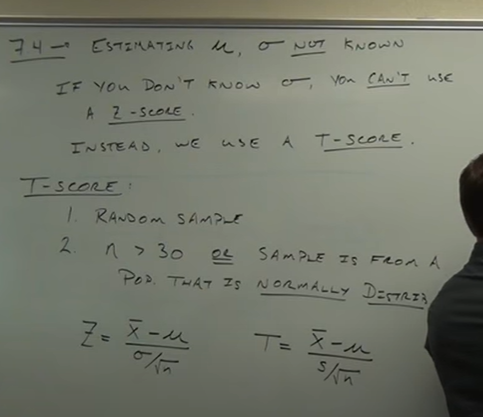 7.4 → ESTIMATING μ, σ NOT KNOWN
IF YOU DON'T KNOW σ, YOU CAN'T USE
A Z-SCORE.
INSTEAD, WE USE A T-SCORE.
T-SCORE:
1. RANDOM SAMPLE
2. n > 30 OR SAMPLE IS FROM A
POP. THAT IS NORMALLY DISTRIB
Z = (x̄ - μ) / (σ/√n) T = (x̄ - μ) / (s/√n)